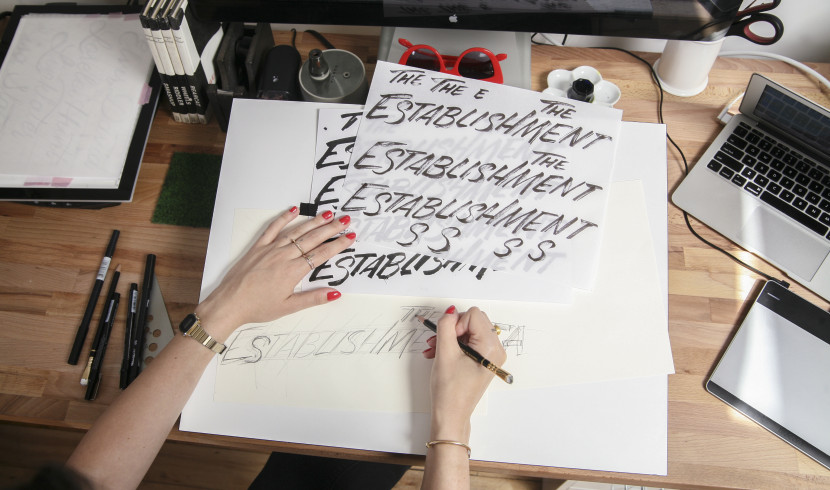 THE THE E
THE
ESTABLISHMENT
THE
ESTABLISHMENT
ESTABLISHMENT
S S S S
ESTABLISHMENT
THE
ESTABLISHME TA